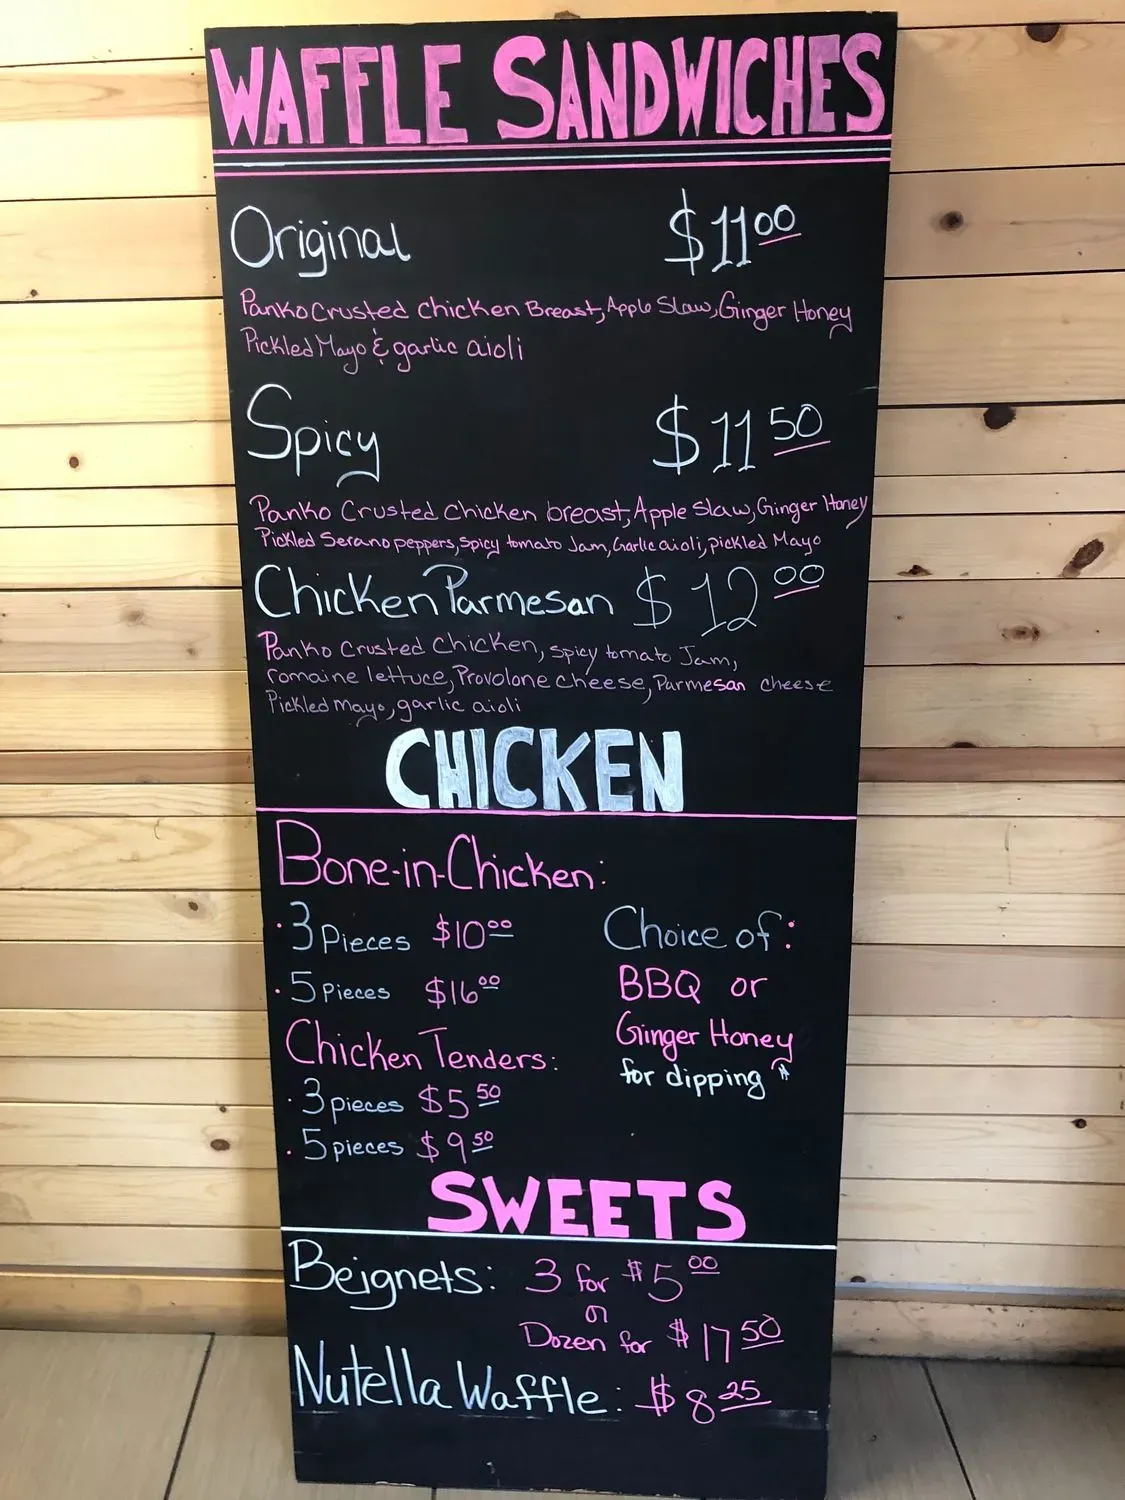 WAFFLE SANDWICHES
Original $11.00
Panko Crusted Chicken Breast, Apple Slaw, Ginger Honey
Pickled Mayo & garlic aioli
Spicy $11.50
Panko Crusted chicken breast, Apple Slaw, Ginger Honey
Pickled Serano peppers, spicy tomato Jam, Garlic aioli, pickled Mayo
Chicken Parmesan $12.00
Panko Crusted Chicken, spicy tomato Jam,
romaine lettuce, Provolone cheese, Parmesan cheese
Pickled mayo, garlic aioli
CHICKEN
Bone-in-Chicken:
· 3 Pieces $10.00
· 5 Pieces $16.00
Choice of:
BBQ or
Ginger Honey
for dipping
Chicken Tenders:
· 3 pieces $5.50
· 5 pieces $9.50
SWEETS
Beignets: 3 for $5.00
or
Dozen for $17.50
Nutella Waffle: $8.25